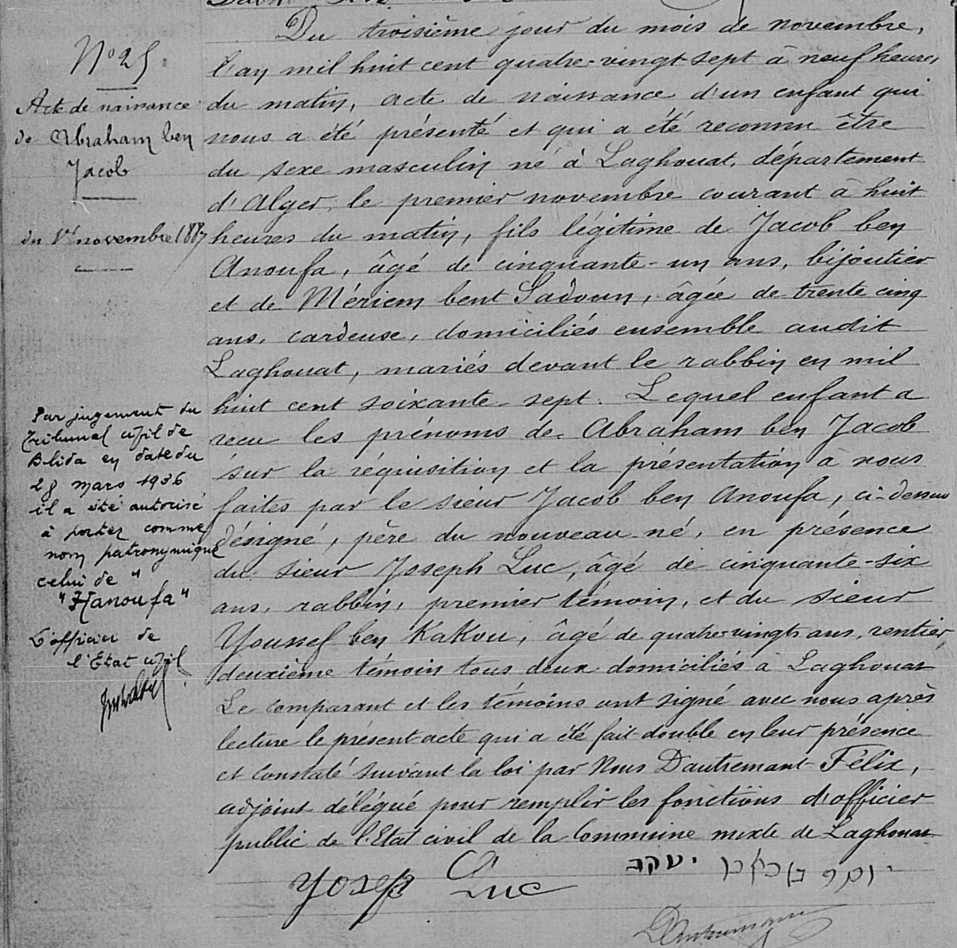 N° 25.
Acte de naissance
de Abraham ben
Jacob
du 1er novembre 1887
Par jugement du
Tribunal civil de
Blida en date du
28 mars 1936
il a été autorisé
à porter comme
nom patronymique
celui de "
"Hanoufa"
L'officier de
l'Etat civil
Du troisième jour du mois de novembre,
l'an mil huit cent quatre-vingt sept à neuf heures
du matin, acte de naissance d'un enfant qui
nous a été présenté et qui a été reconnu être
du sexe masculin né à Laghouat, département
d'Alger, le premier novembre courant à huit
heures du matin, fils légitime de Jacob ben
Anoufa, âgé de cinquante-un ans, bijoutier
et de Mériem bent Sadoun, âgée de trente cinq
ans, cardeuse, domiciliés ensemble audit
Laghouat, mariés devant le rabbin en mil
huit cent soixante-sept. Lequel enfant a
reçu les prénoms de Abraham ben Jacob
sur la réquisition et la présentation à nous
faites par le sieur Jacob ben Anoufa, ci-dessus
désigné, père du nouveau né, en présence
du sieur Joseph Luc, âgé de cinquante-six
ans, rabbin, premier témoin, et du sieur
Youssef ben Kakou, âgé de quatre-vingts ans, rentier,
deuxième témoin tous deux domiciliés à Laghouat
Le comparant et les témoins ont signé avec nous après
lecture le présent acte qui a été fait double en leur présence
et constaté suivant la loi par Nous Dautremant Félix,
adjoint délégué pour remplir les fonctions d'officier
public de l'Etat civil de la Commune mixte de Laghouat
Yosep Luc יעקב